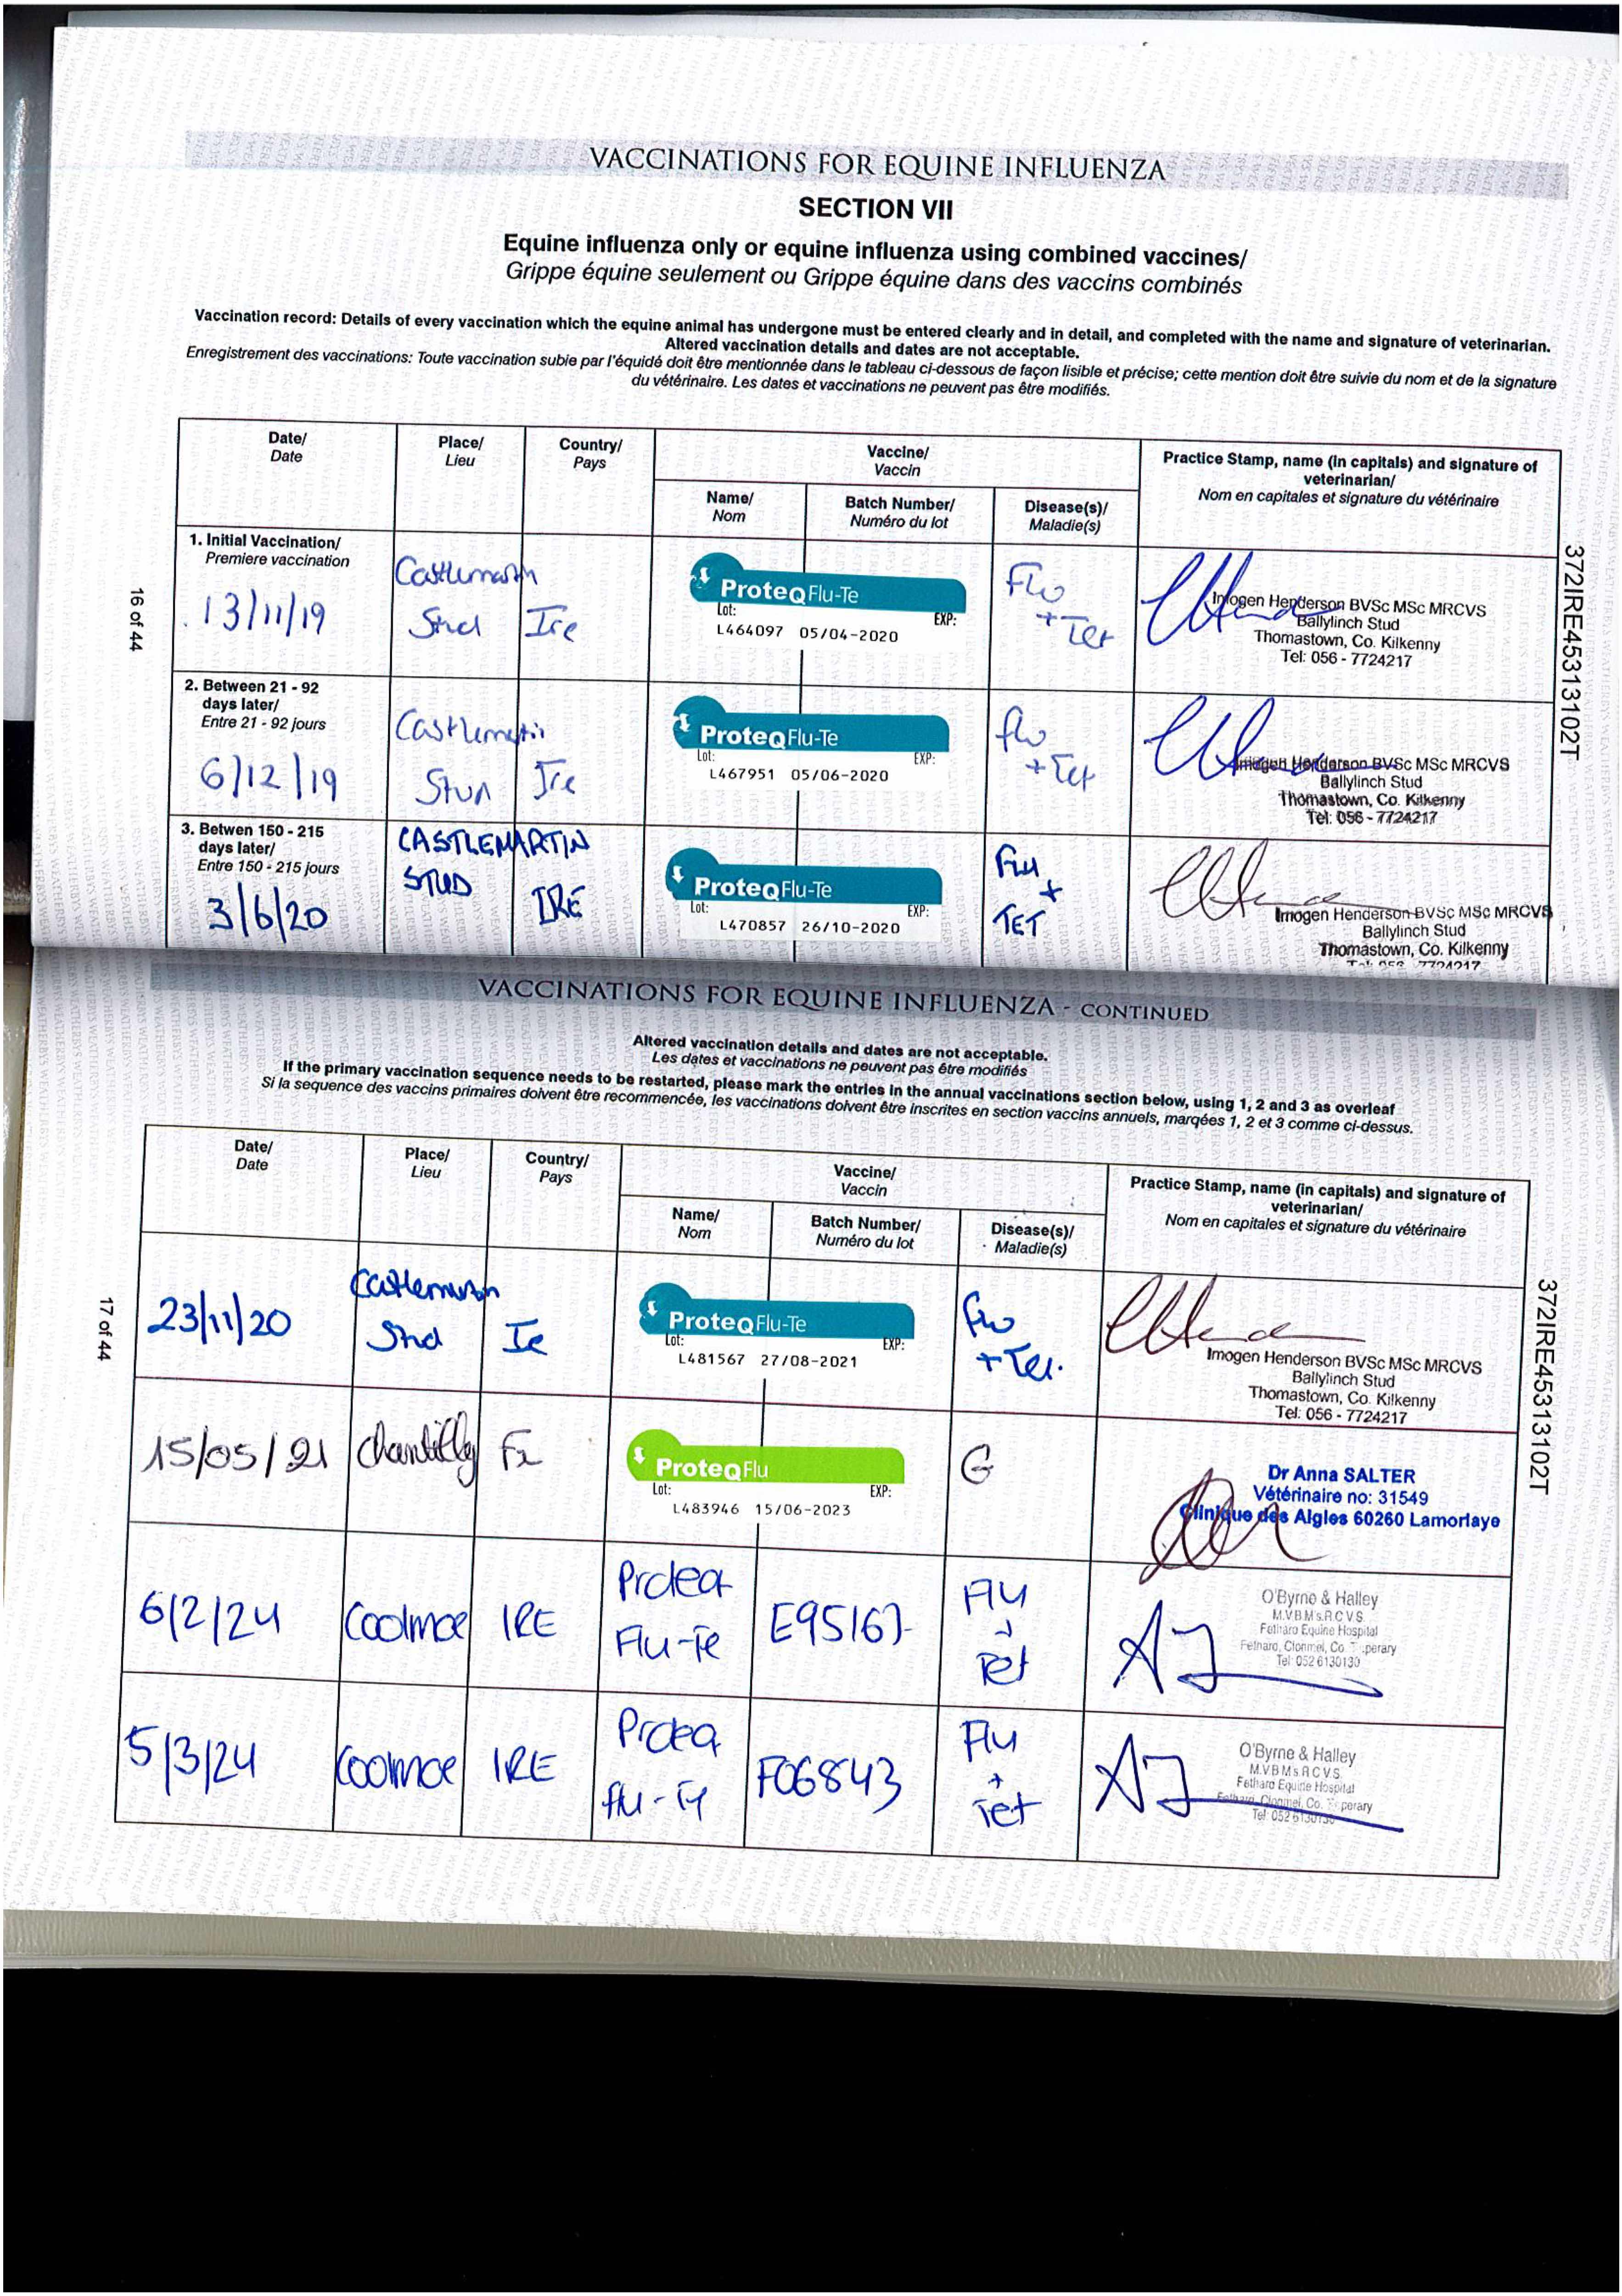 VACCINATIONS FOR EQUINE INFLUENZA
SECTION VII
Equine influenza only or equine influenza using combined vaccines/
Grippe équine seulement ou Grippe équine dans des vaccins combinés
Vaccination record: Details of every vaccination which the equine animal has undergone must be entered clearly and in detail, and completed with the name and signature of veterinarian.
Altered vaccination details and dates are not acceptable.
Enregistrement des vaccinations: Toute vaccination subie par l'équidé doit être mentionnée dans le tableau ci-dessous de façon lisible et précise; cette mention doit être suivie du nom et de la signature
du vétérinaire. Les dates et vaccinations ne peuvent pas être modifiés.
Date/
Date
Place/
Lieu
Country/
Pays
Vaccine/
Vaccin
Name/
Nom
Batch Number/
Numéro du lot
Disease(s)/
Maladie(s)
Practice Stamp, name (in capitals) and signature of
veterinarian/
Nom en capitales et signature du vétérinaire
1. Initial Vaccination/
Premiere vaccination
13/11/19
Castlemartin
Stud
Ire
ProteqFlu-Te
Lot: EXP:
L464097 05/04-2020
Flu
+ Tet
Imogen Henderson BVSc MSc MRCVS
Ballylinch Stud
Thomastown, Co. Kilkenny
Tel: 056 - 7724217
2. Between 21 - 92
days later/
Entre 21 - 92 jours
6/12/19
Castlemartin
Stud
Ire
ProteqFlu-Te
Lot: EXP:
L467951 05/06-2020
flu
+ Tet
Imogen Henderson BVSc MSc MRCVS
Ballylinch Stud
Thomastown, Co. Kilkenny
Tel: 056 - 7724217
3. Betwen 150 - 215
days later/
Entre 150 - 215 jours
3/6/20
CASTLEMARTIN
STUD
IRE
ProteqFlu-Te
Lot: EXP:
L470857 26/10-2020
Flu
+
TET
Imogen Henderson BVSc MSc MRCVS
Ballylinch Stud
Thomastown, Co. Kilkenny
Tel: 056 - 7724217
16 of 44
372IRE45313102T
VACCINATIONS FOR EQUINE INFLUENZA - CONTINUED
Altered vaccination details and dates are not acceptable.
Les dates et vaccinations ne peuvent pas être modifiés
If the primary vaccination sequence needs to be restarted, please mark the entries in the annual vaccinations section below, using 1, 2 and 3 as overleaf
Si la sequence des vaccins primaires doivent être recommencée, les vaccinations doivent être inscrites en section vaccins annuels, marqées 1, 2 et 3 comme ci-dessus.
Date/
Date
Place/
Lieu
Country/
Pays
Vaccine/
Vaccin
Name/
Nom
Batch Number/
Numéro du lot
Disease(s)/
Maladie(s)
Practice Stamp, name (in capitals) and signature of
veterinarian/
Nom en capitales et signature du vétérinaire
23/11/20
Castlemartin
Stud
Ie
ProteqFlu-Te
Lot: EXP:
L481567 27/08-2021
flu
+ Tet.
Imogen Henderson BVSc MSc MRCVS
Ballylinch Stud
Thomastown, Co. Kilkenny
Tel: 056 - 7724217
15/05/21
Chantilly
Fr
ProteqFlu
Lot: EXP:
L483946 15/06-2023
G
Dr Anna SALTER
Vétérinaire no: 31549
Clinique des Aigles 60260 Lamorlaye
6/2/24
Coolmoe
IRE
Proteq
Flu-Te
Flu
+
Tet
O'Byrne & Halley
M.V.B.M.s.R.C.V.S.
Fethard Equine Hospital
Fethard, Clonmel, Co. Tipperary
Tel: 052 6130130
5/3/24
Coolmoe
IRE
Proteq
flu-Te
F06843
Flu
+
Tet
O'Byrne & Halley
M.V.B.M.s.R.C.V.S.
Fethard Equine Hospital
Fethard, Clonmel, Co. Tipperary
Tel: 052 6130130
17 of 44
372IRE45313102T